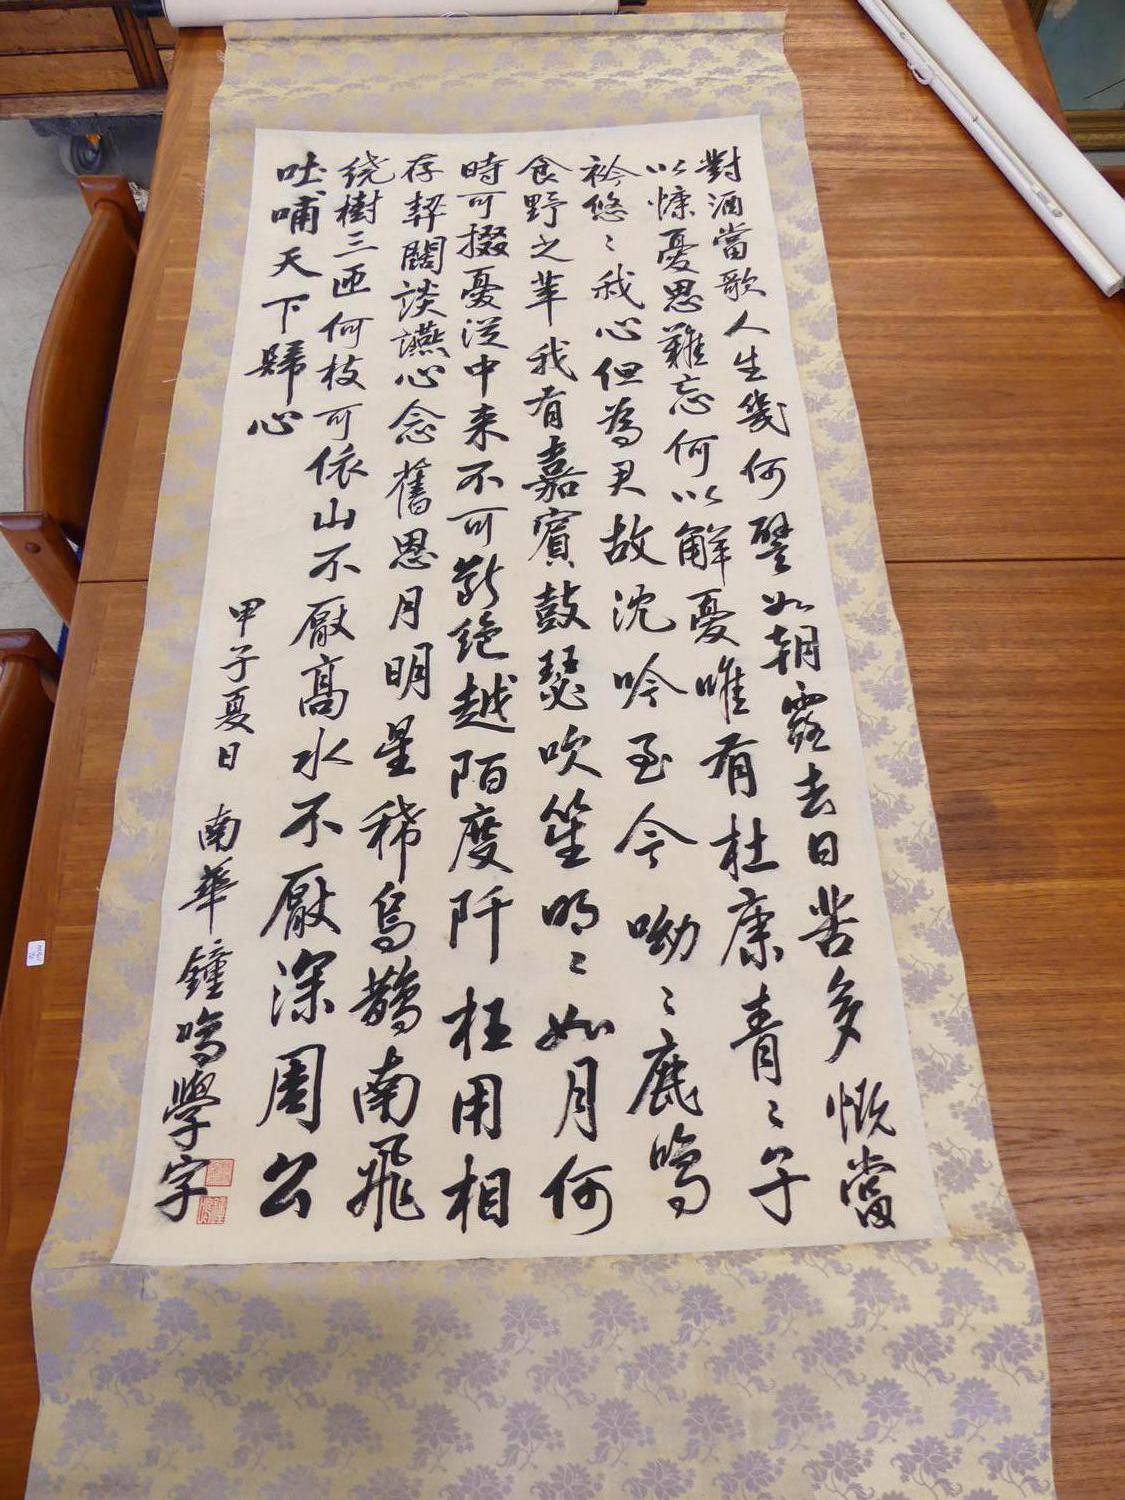 對酒當歌人生幾何譬如朝露去日苦多慨當
以慷憂思難忘何以解憂唯有杜康青〻子
衿悠〻我心但為君故沈吟至今呦〻鹿鳴
食野之苹我有嘉賓鼓瑟吹笙明〻如月何
時可掇憂從中来不可斷絕越陌度阡枉用相
存契闊談讌心念舊恩月明星稀烏鵲南飛
绕樹三匝何枝可依山不厭高水不厭深周公
吐哺天下歸心
甲子夏日 南華鐘鳴學字